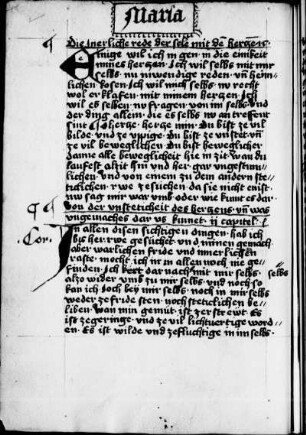 Maria
Die Inerliche rede der sele mit dē hertzēn
Einige wil ich in gen in die einheit
mines hertzen Ich wil selbs mit mir
selbs nu inwendige reden vn̄ heim
lichen kosen Ich wil mich selbs nv recht
wol erklafen mit minem hertzen Ich
wil es selben nv fragen von im selbs vnd
der ding allein die es selbs nv an treffent
sint O hertze hertze min Du bist ze vil
bilde vnd ze vppige Du bist ze vnstet vn̄
ze vil beweglichen Du bist beweglicher
danne alle beweglicheit hie in zit wan du
laufest alzit hin vnd her gar
lichen vnd von einem zu dem andern stet
teclichen r we ze suchen da sie nicht enist
nv sag mir war vmb oder wie kunt es dar
von der vnsteticheit des hertzens vn̄ was
vngemaches dar vs kunnet ij capitel
Cor. In allen disen sichtigen dingen hab ich
bis her rwe gesuchet vnd minen gemach
aber warlichen fride vnd innerlichen
raste mocht ich nr in allen noch nie ge
finden Ich kert dar nach mit mir selbs selbs
also wider vmb zu mir selbs vnd noch so
kan ich doch bey mir selbs noch in mir selbs
weder ze fride sten noch stetiklichen be
liben wan min gemüt ist zerstewt Es
ist ze geringe vnd ze vil lichtuertige word
en Es ist wilde vnd zefluchtige in im selbs